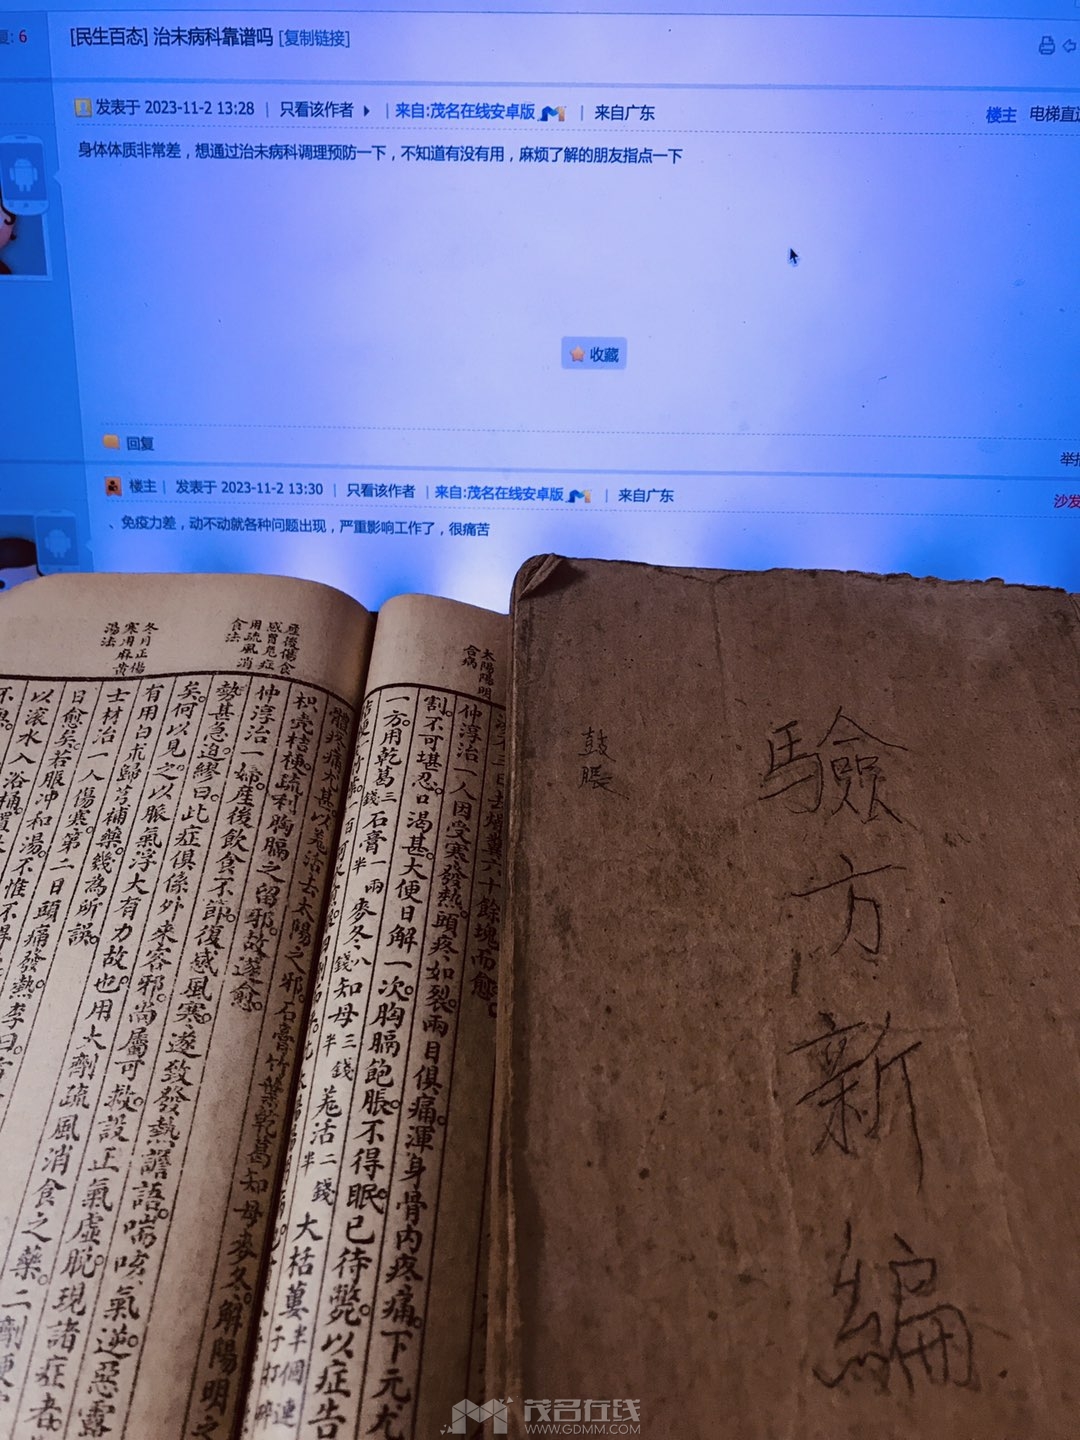 复: 6
[民生百态] 治未病科靠谱吗 [复制链接]
发表于 2023-11-2 13:28 | 只看该作者 | 来自:茂名在线安卓版 | 来自广东
楼主 电梯直
身体体质非常差，想通过治未病科调理预防一下，不知道有没有用，麻烦了解的朋友指点一下
收藏
回复
举报
楼主 | 发表于 2023-11-2 13:30 | 只看该作者 | 来自:茂名在线安卓版 | 来自广东
沙发
、免疫力差，动不动就各种问题出现，严重影响工作了，很痛苦
驗方新編
鼓脹
太陽陽明
合病
六十餘塊而愈。
仲淳治一人因受寒發熱。頭疼如裂。兩目俱痛。渾身骨內疼痛。下元尤
割。不可堪忍。口渴甚。大便日解一次。胸膈飽脹。不得眠。已待斃。以症告
一方。用乾葛三錢石膏一兩半麥冬八錢知母三錢半羗活二錢半大栝蔞半個連
子打碎
產後傷食
感冒危症
用疏風消
食法
冬月正傷
寒用麻黃
湯法
體疼痛尤甚。以羗活去太陽之邪。石膏竹葉乾葛知母麥冬。解陽明之
枳壳桔梗。疏利胸膈之留邪。故遂愈。
仲淳治一婦。產後飲食不節。復感風寒。遂致發熱譫語。喘咳氣逆。惡露
勢甚急迫。繆曰。此症俱係外來客邪。尚屬可救。設正氣虛脫。現諸症者。
矣。何以見之。以脈氣浮大有力故也。用大劑疏風消食之藥。二劑
有用白朮歸芎補藥。幾為所誤。
士材治一人傷寒。第二日頭痛發熱。李曰。
日愈矣。若服冲和湯。不惟不得
以滚水入浴桶。置
茂名在线
WWW.GDMM.COM